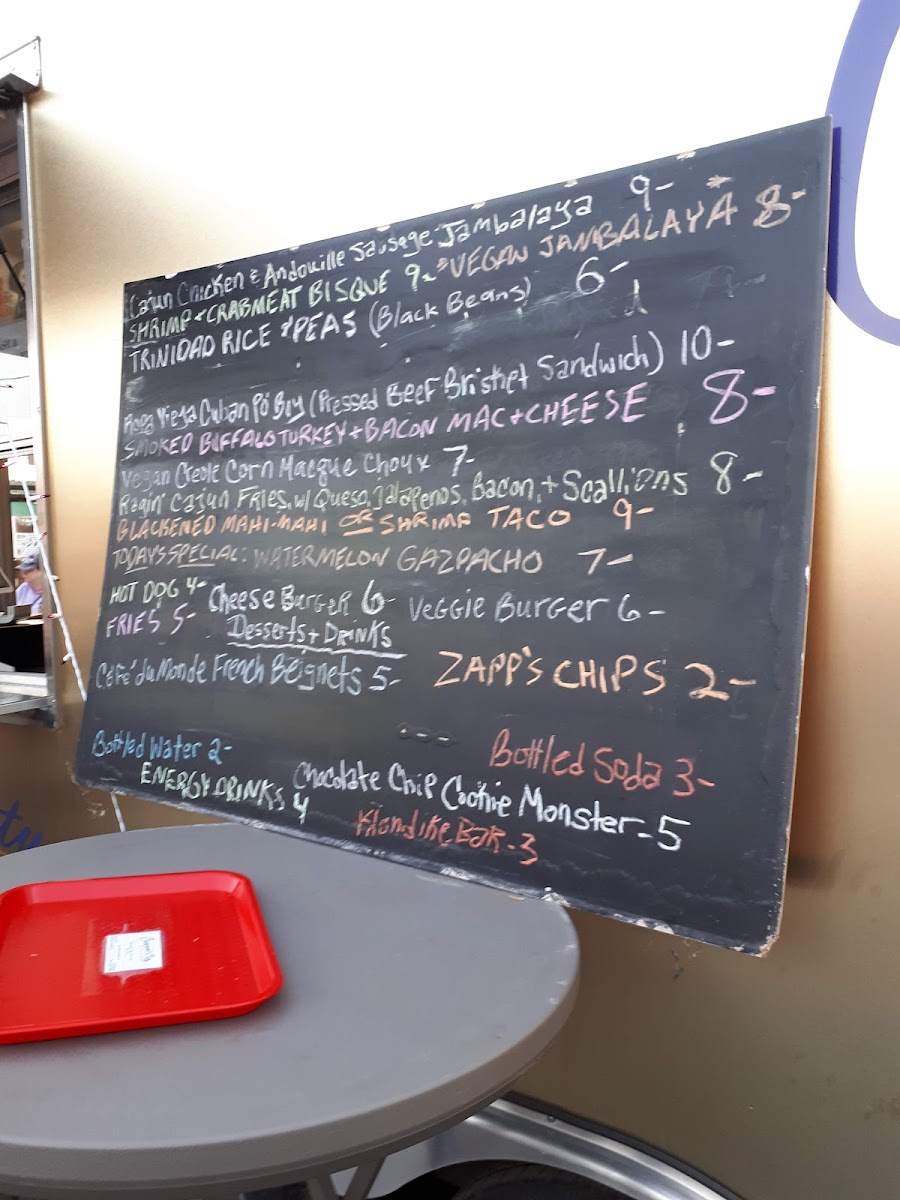 Cajun Chicken & Andouille Sausage Jambalaya 9-
SHRIMP + CRABMEAT BISQUE 9- *VEGAN JAMBALAYA* 8-
TRINIDAD RICE + PEAS (Black Beans) 6-
Ropa Vieja Cuban Po Boy (Pressed Beef Brisket Sandwich) 10-
SMOKED BUFFALO TURKEY + BACON MAC + CHEESE 8-
Vegan Creole Corn Macque Choux 7-
Ragin' Cajun Fries, w/ Queso, Jalapenos, Bacon, + Scallions 8-
BLACKENED MAHI-MAHI OR SHRIMP TACO 9-
TODAY'S SPECIAL: WATERMELON GAZPACHO 7-
HOT DOG 4- Cheese Burger 6- Veggie Burger 6-
FRIES 5-
Desserts + Drinks
Cafe' du Monde French Beignets 5- ZAPP'S CHIPS 2-
Bottled Water 2- Bottled Soda 3-
ENERGY DRINKS 4 Chocolate Chip Cookie Monster - 5
Klondike Bar - 3